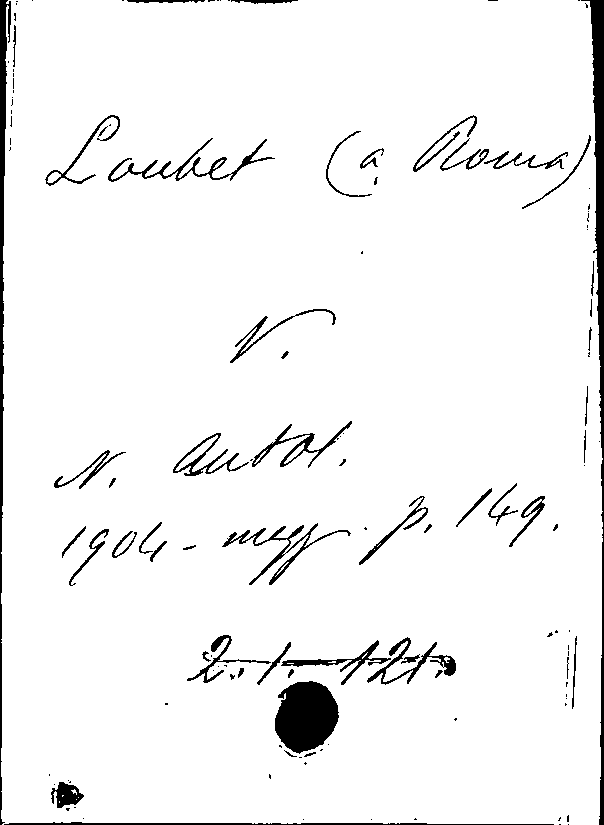 Loubet (a Roma)
V.
N. Antol.
1904 - magg. p. 149.
2. 1. 121.